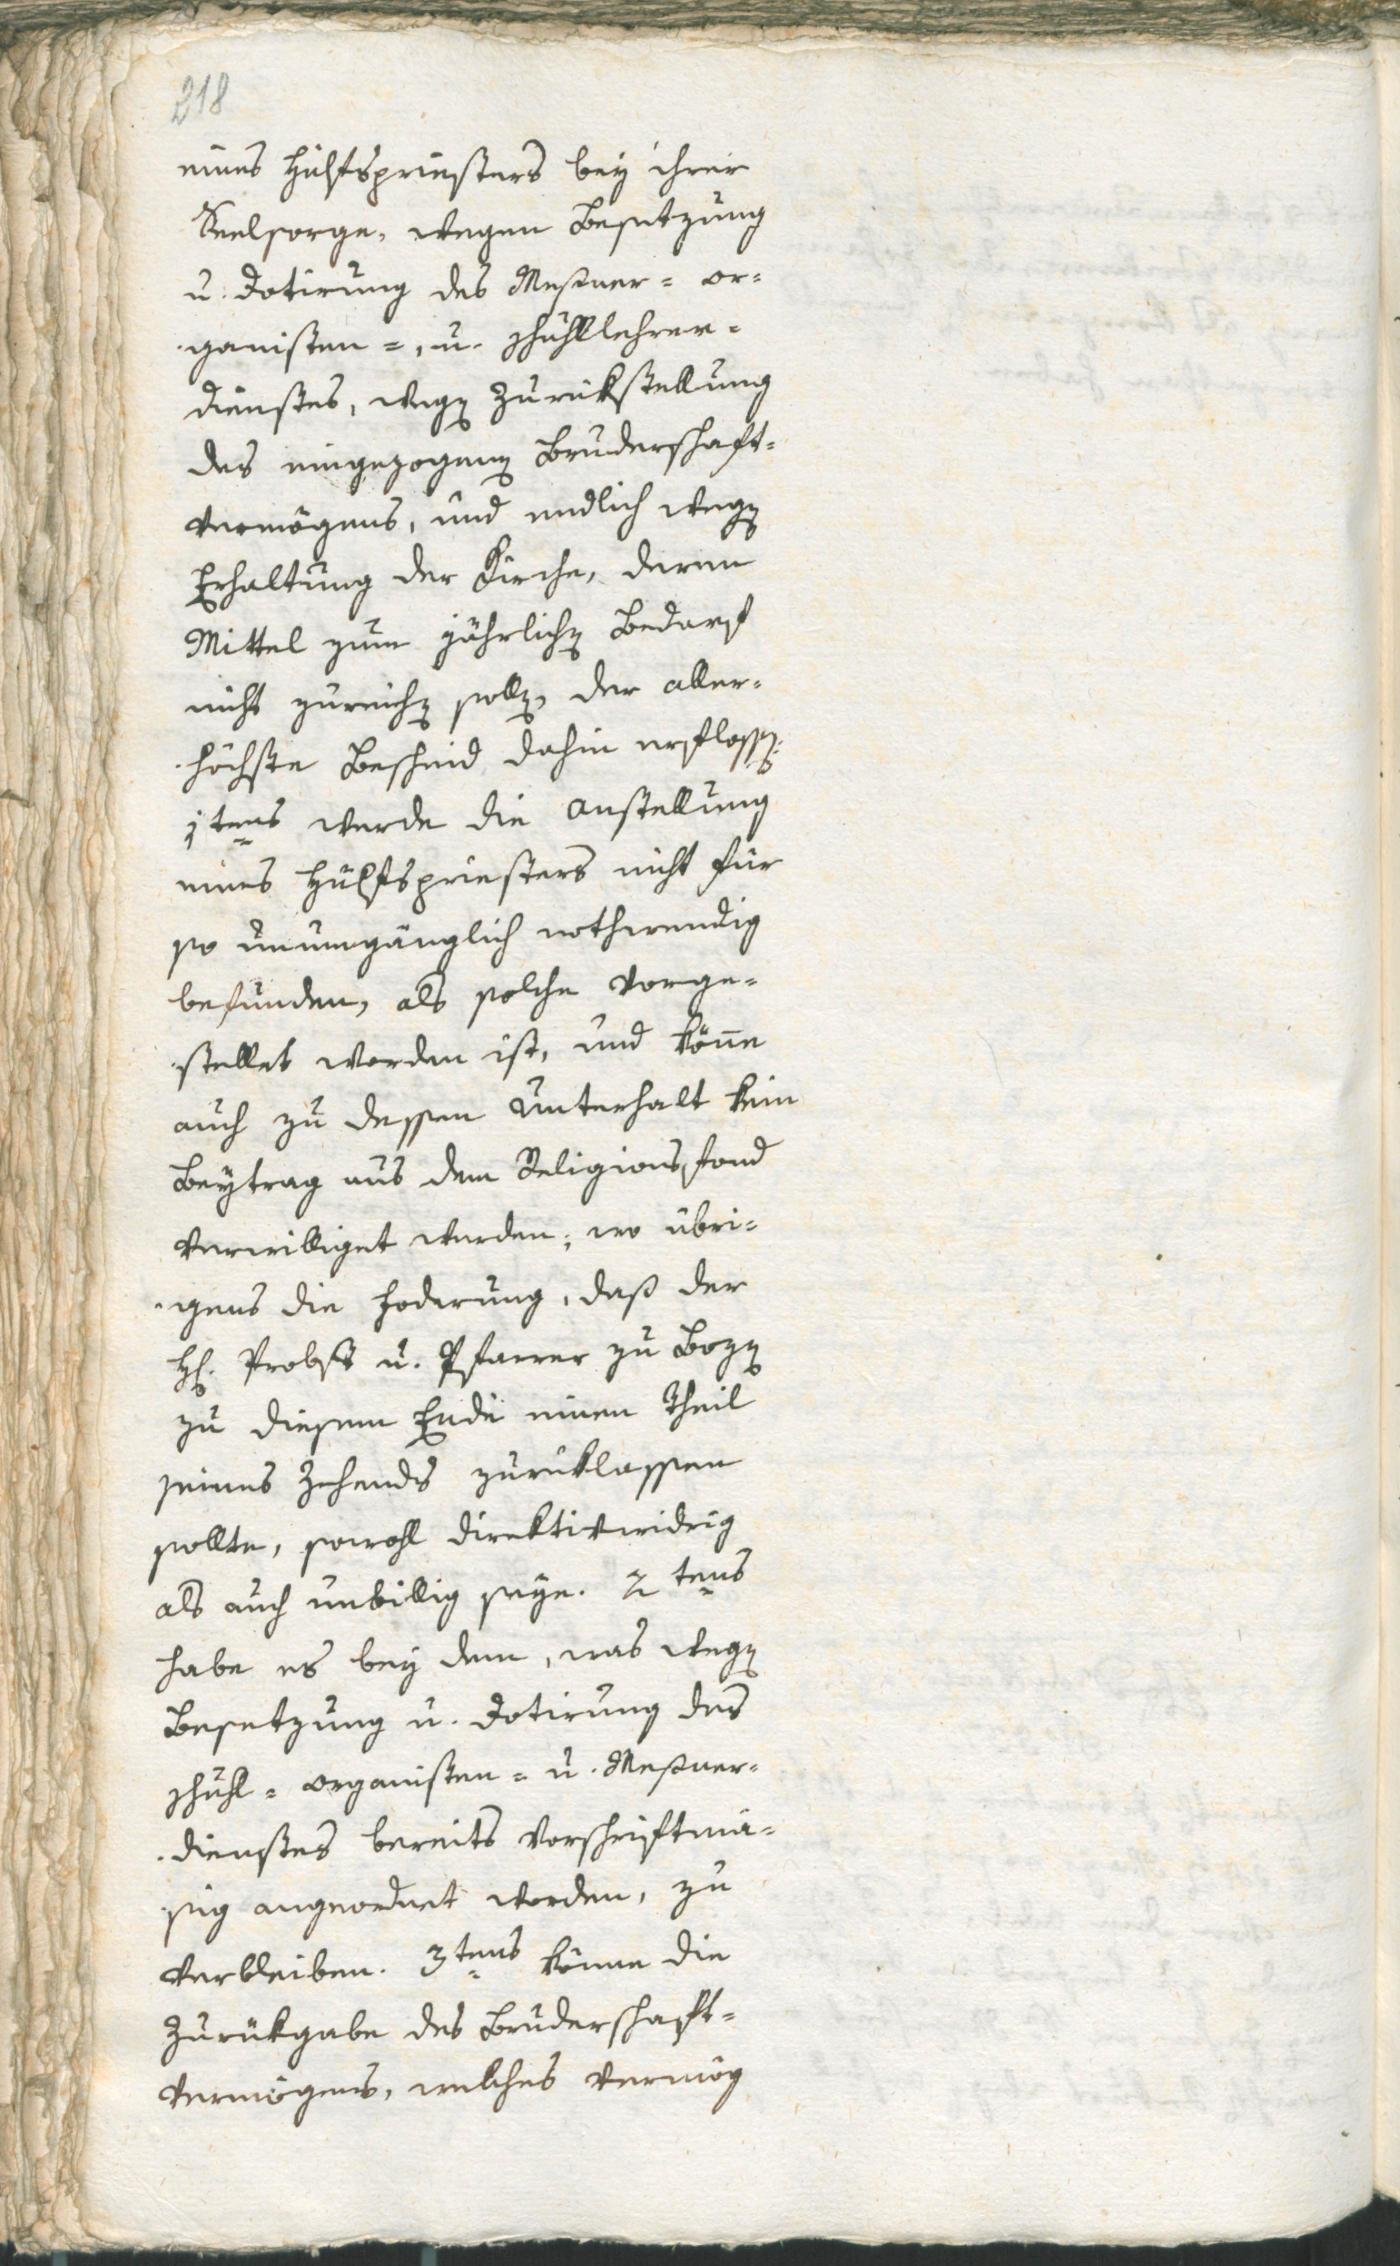 218
eines Hülfspriesters bey ihrer
Seelsorge, wegen Besetzung
u. Dotirung des Meßner= or=
ganisten=, u. Schullehrer=
dienstes, wegen Zurückstellung
des eingezogenen Bruderschaft=
vermögens, und endlich wegen
Erhaltung der Kirche, deren
Mittel zum jährlichen Bedarf
nicht zureichen sollen, der aller=
höchste Bescheid dahin erflossen:
1tens werde die Anstellung
eines Hülfspriesters nicht für
so unumgänglich nothwendig
befunden, als solche vorge=
stellet worden ist, und könne
auch zu dessen Unterhalt kein
Beytrag aus dem Religionsfond
verwilliget werden; wo übri=
gens die Foderung, daß der
H. Probst u. Pfarrer zu Bozen
zu diesem Ende einen Theil
seines Zehends zurücklassen
sollte, sowohl direktivwidrig
als auch unbillig seye. 2tens
habe es bey dem, was wegen
Besetzung u. Dotirung des
Schul= Organisten= u. Meßner=
dienstes bereits vorschriftmä=
sig angeordnet worden, zu
verbleiben. 3tens könne die
Zurückgabe des Bruderschaft=
vermögens, welches vermög